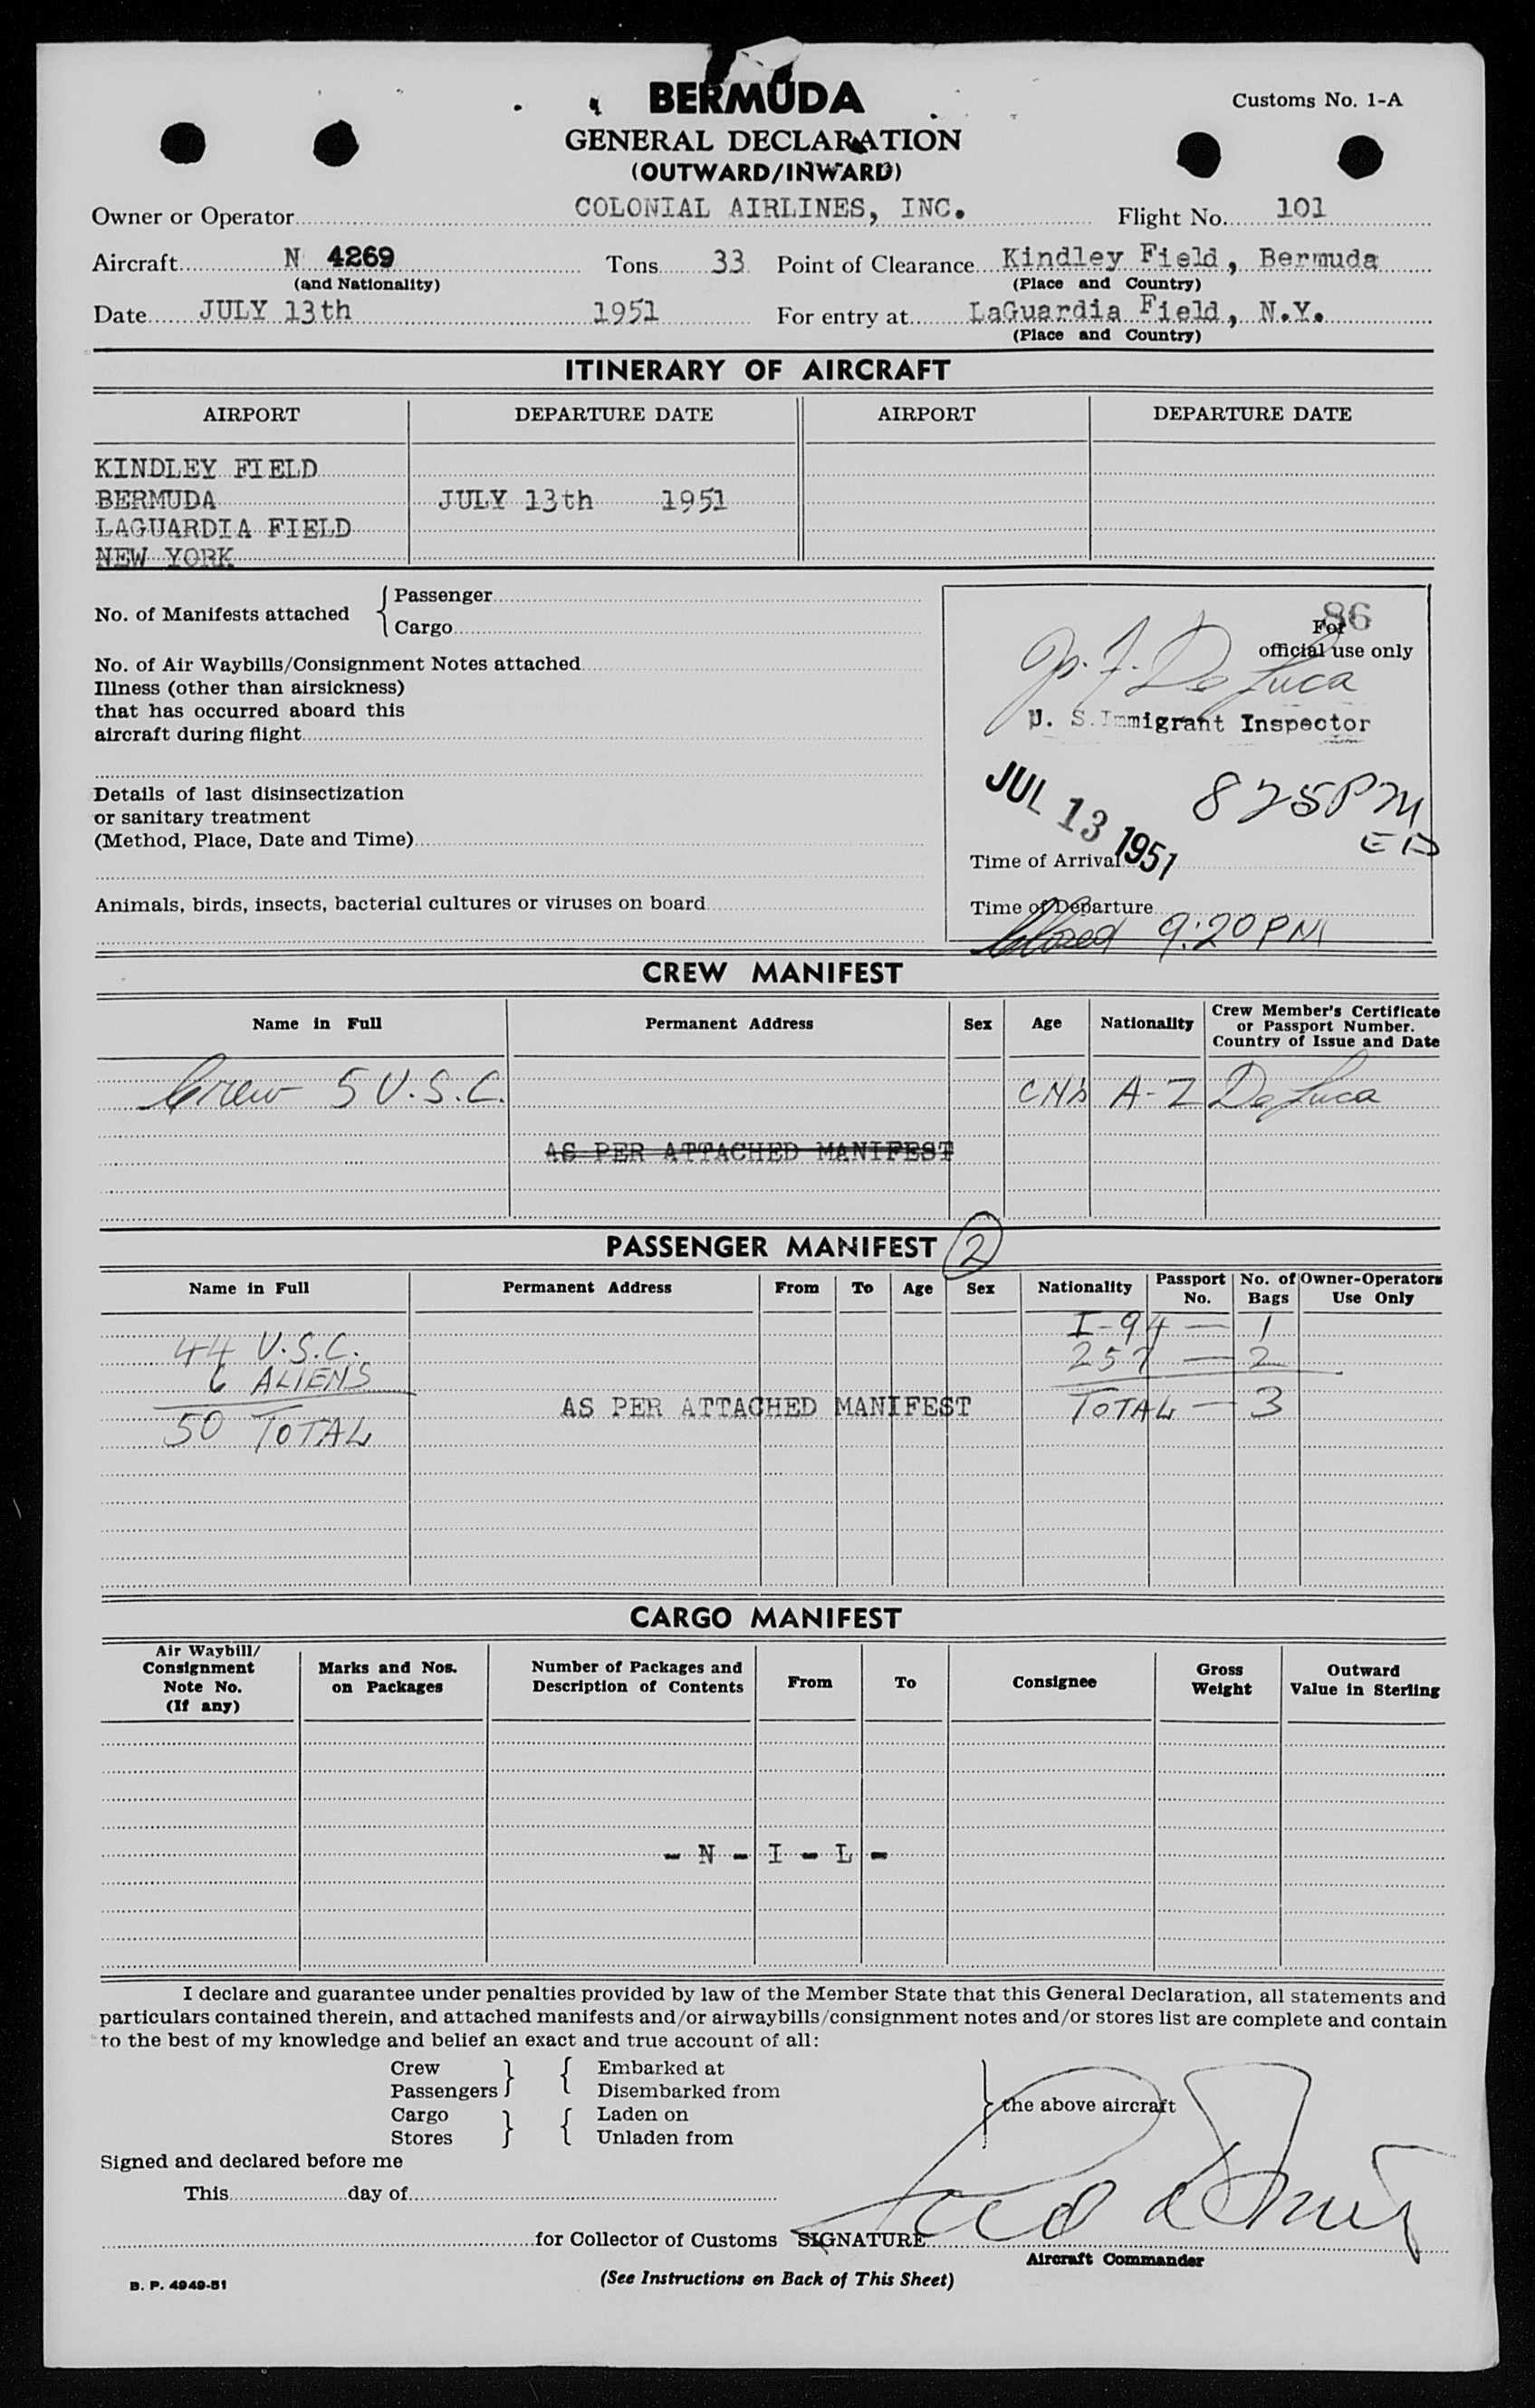 BERMUDA
Customs No. 1-A
GENERAL DECLARATION
(OUTWARD/INWARD)
Owner or Operator COLONIAL AIRLINES, INC. Flight No. 101
Aircraft N 4269 Tons 33 Point of Clearance Kindley Field, Bermuda
(and Nationality) (Place and Country)
Date JULY 13th 1951 For entry at LaGuardia Field, N.Y.
(Place and Country)
ITINERARY OF AIRCRAFT
AIRPORT DEPARTURE DATE AIRPORT DEPARTURE DATE
KINDLEY FIELD
BERMUDA JULY 13th 1951
LAGUARDIA FIELD
NEW YORK
No. of Manifests attached { Passenger
Cargo
No. of Air Waybills/Consignment Notes attached
Illness (other than airsickness)
that has occurred aboard this
aircraft during flight
Details of last disinsectization
or sanitary treatment
(Method, Place, Date and Time)
Animals, birds, insects, bacterial cultures or viruses on board
86
For
official use only
De Luca
U. S. Immigrant Inspector
JUL 13 1951
825 PM
ED
Time of Arrival
Time of Departure
Closed 9:20 PM
CREW MANIFEST
Name in Full Permanent Address Sex Age Nationality Crew Member's Certificate
or Passport Number.
Country of Issue and Date
Crew 5 U.S.C. A-Z De Luca
AS PER ATTACHED MANIFEST
PASSENGER MANIFEST 2
Name in Full Permanent Address From To Age Sex Nationality Passport No. No. of Bags Owner-Operators Use Only
I-94 — 1
44 U.S.C. 257 — 2
6 ALIENS
AS PER ATTACHED MANIFEST TOTAL — 3
50 TOTAL
CARGO MANIFEST
Air Waybill/ Consignment Note No. (If any) Marks and Nos. on Packages Number of Packages and Description of Contents From To Consignee Gross Weight Outward Value in Sterling
- N - I - L -
I declare and guarantee under penalties provided by law of the Member State that this General Declaration, all statements and
particulars contained therein, and attached manifests and/or airwaybills/consignment notes and/or stores list are complete and contain
to the best of my knowledge and belief an exact and true account of all:
Crew } { Embarked at
Passengers Disembarked from
} the above aircraft
Cargo } { Laden on
Stores Unladen from
Signed and declared before me
This day of
for Collector of Customs SIGNATURE
Aircraft Commander
B. P. 4949-51
(See Instructions on Back of This Sheet)